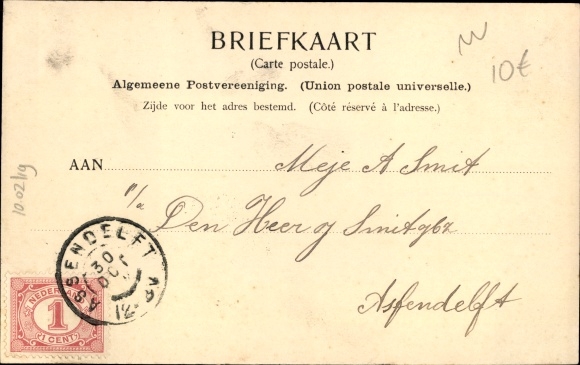 BRIEFKAART
(Carte postale.)
Algemeene Postvereeniging. (Union postale universelle.)
Zijde voor het adres bestemd. (Côté réservé à l'adresse.)
10€
AAN Meje A Smit
p/a
Den Heer J Smit gbz
Assendelft
10.02/19
ASSENDELFT
30
OCT
NEDERLAND
1
(1 CENT)